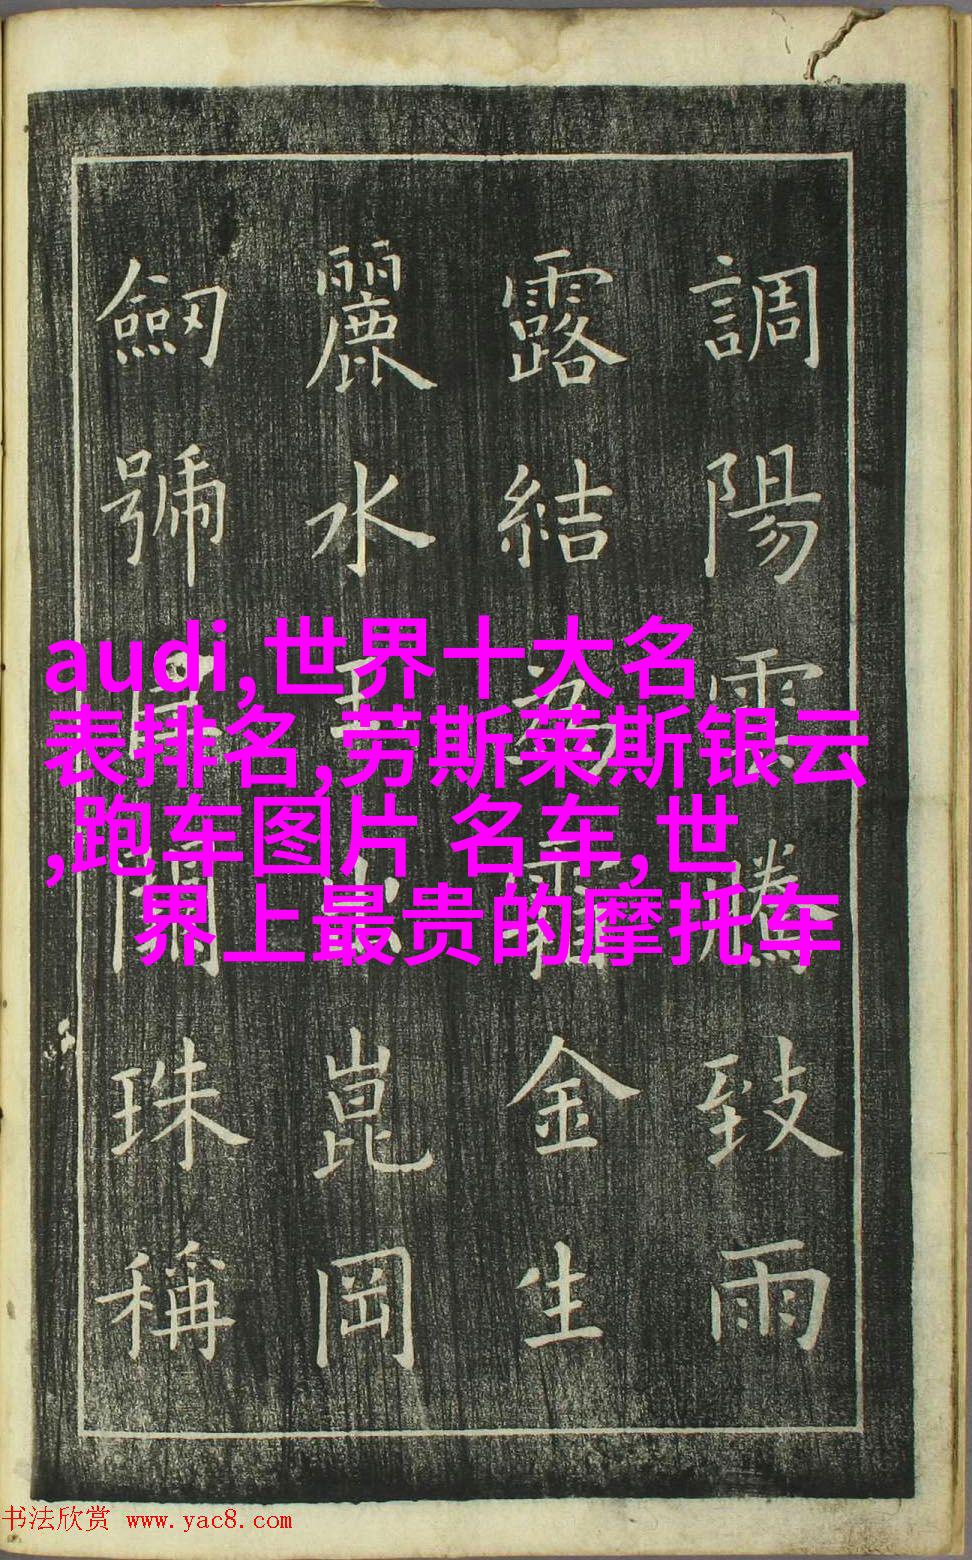 調陽雲騰致雨
露結為霜金生
麗水玉出崑岡
劔號巨闕珠稱
audi,世界十大名
表排名,劳斯莱斯银云
,跑车图片 名车,世
界上最贵的摩托车
书法欣赏 www.yac8.com